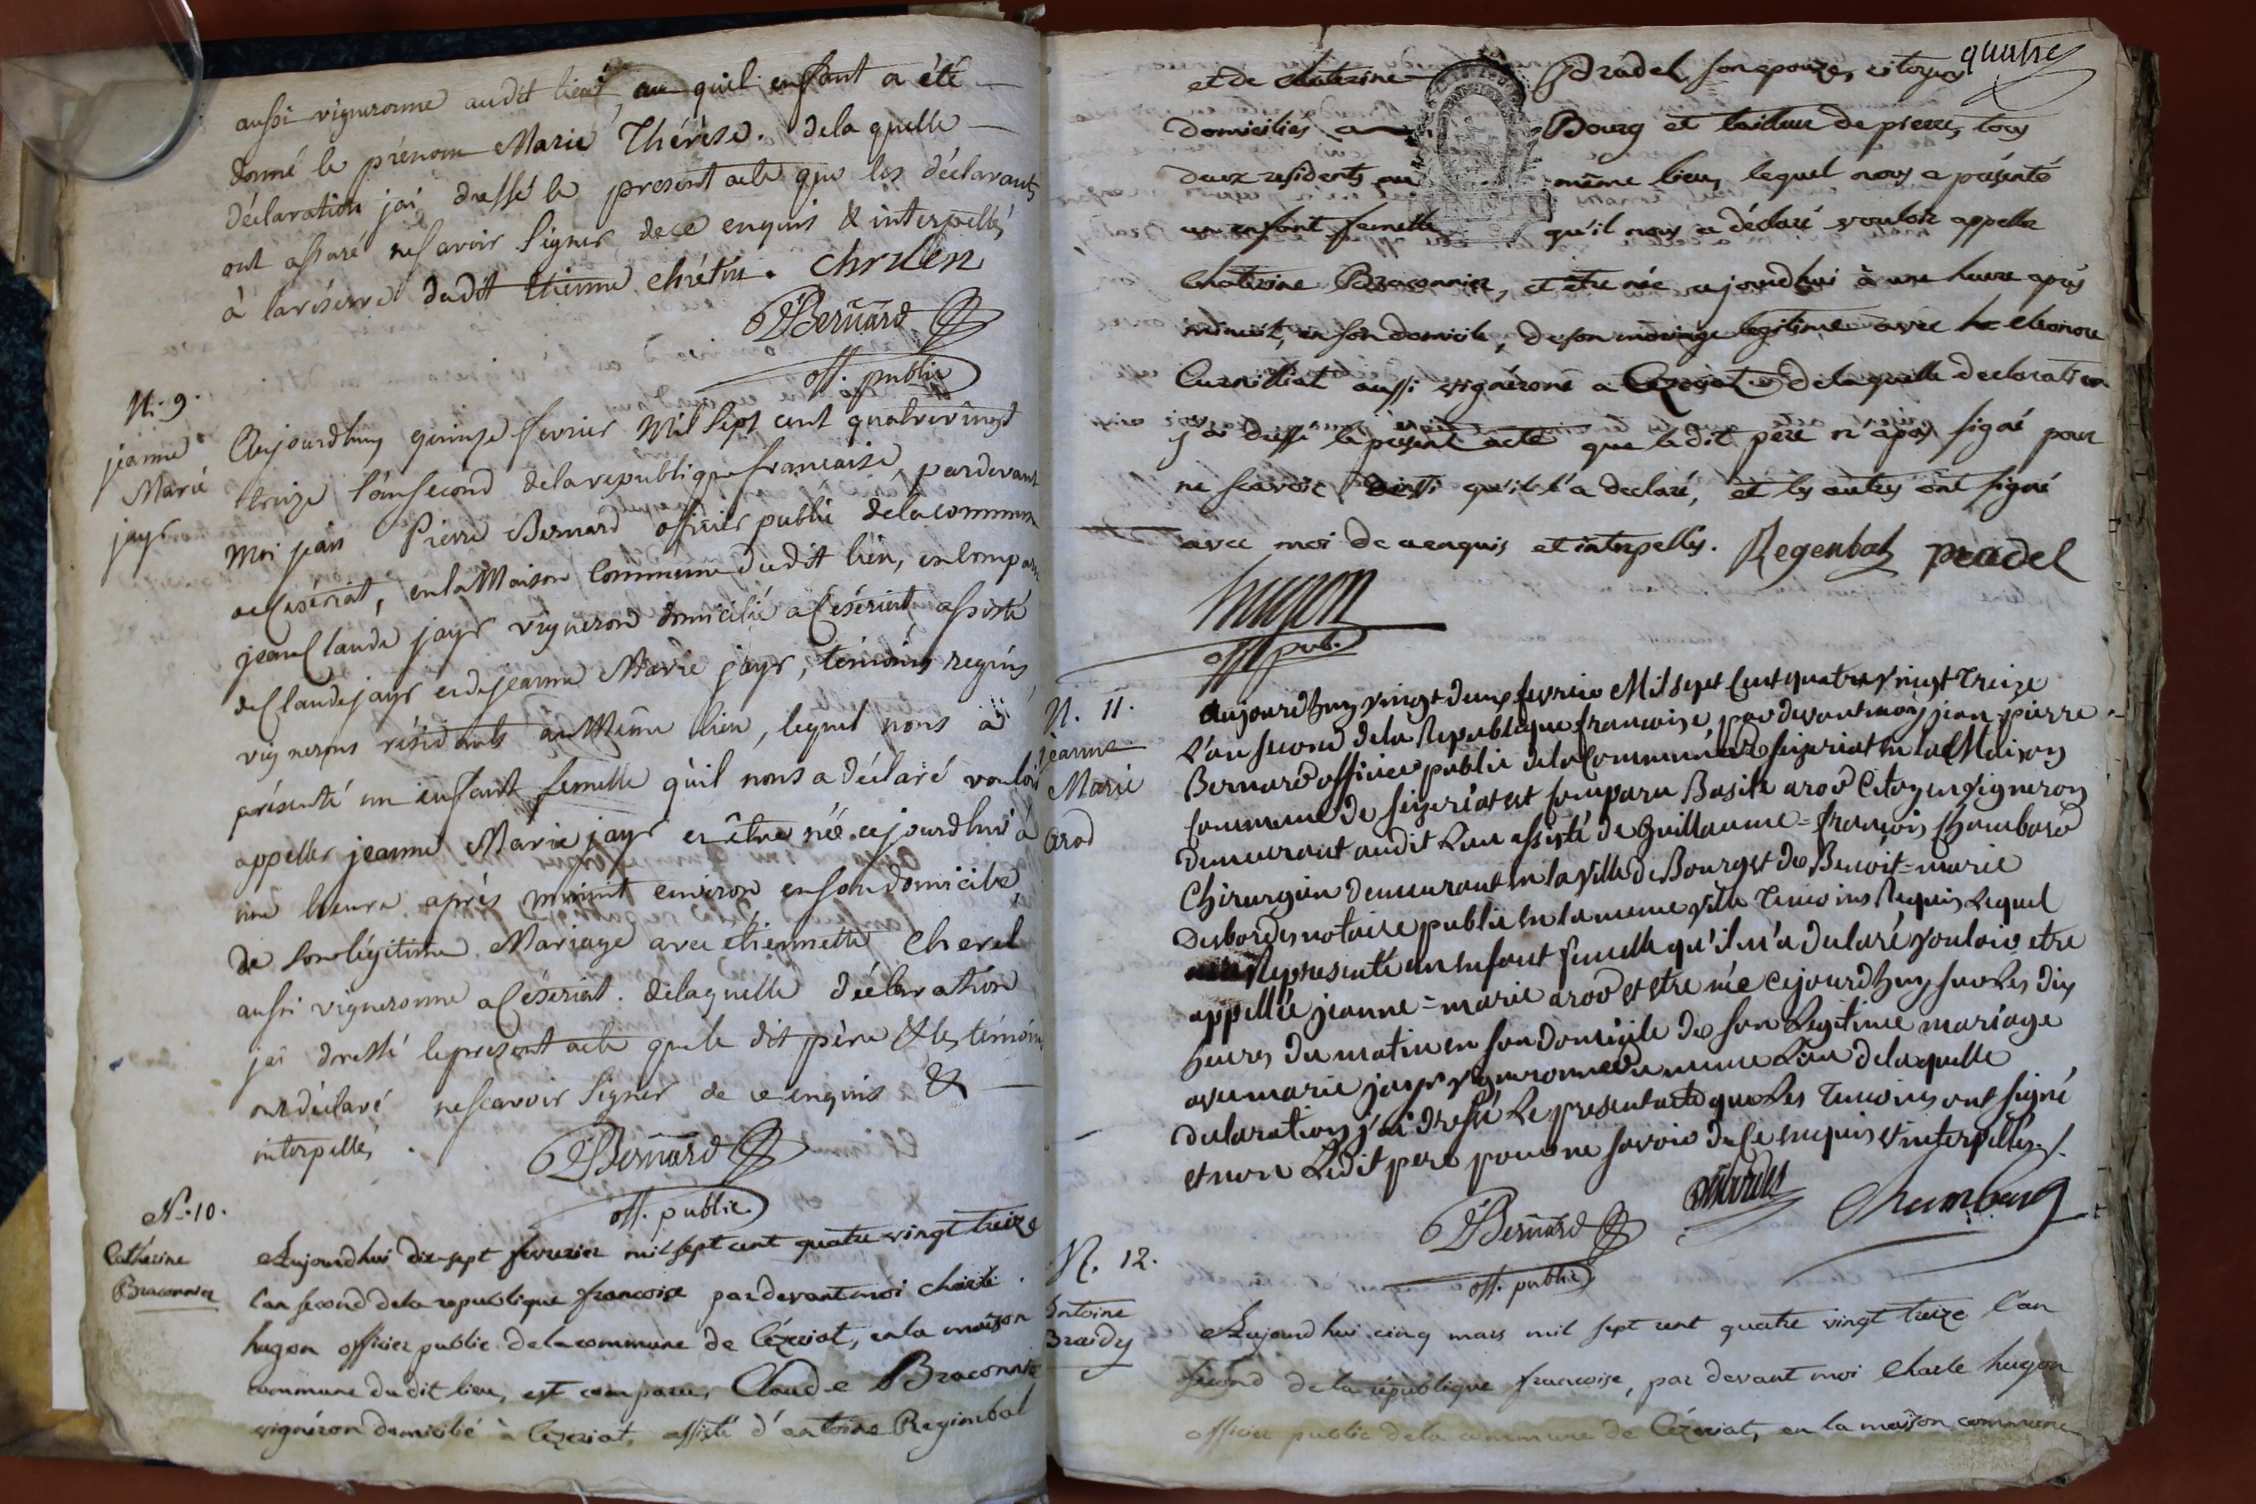 aussi vigneronne audit lieu, au quel enfant a été
donné le prénom Marie Thérèse. de la quelle
déclaration jai dressé le present acte que les déclarants
ont assuré ne savoir signer de ce enquis & interpellés
à la réserve dudit Etienne chrétin. chrilen
Bernard
off. public
N. 9.
jeanne
Marie
jayr
Aujourdhuy quinze fevrier mil sept cent quatrevingt
treize l'an second de la republique francaise, pardevant
moi jean Pierre Bernard officier public de la commune
de Ceseriat, en la Maison Commune dudit lieu, est comparu
jean Claude jayr vigneron domicilié a Céseriat assisté
de Claude jayr et de jeanne Marie jayr, témoins requis,
vignerons résidants au Même lieu, lequel nous à
présenté un enfant femelle quil nous a déclaré vouloir
appeller jeanne Marie jayr et être née cejourdhui à
une heure après minuit environ en son domicile
de son légitime Mariage avec étiennette Cherel
aussi vigneronne a Céseriat. de laquelle déclaration
jai dressé le present acte que le dit père & les témoins
ont déclaré ne scavoir signer de ce enquis &
interpellés.
Bernard
off. public
N. 10.
Cathérine
Braconnier
Aujourdhui dix-sept fevrier mil sept cent quatre vingt treize
l'an second de la republique francoise par devant moi charle
hugon officier public de la commune de Cézeriat, en la maison
commune du dit lieu, est comparu, Claude Braconnie
vignéron domicilié à Cézeriat, assisté d'entoine Regimbal
quatre
et de chaterine Pradel son epouze, citoyens
domiciliés a Bourg et tailleur de pierre, tous
deux residents au même lieu, lequel nous a présenté
un enfant femelle qu'il nous a déclaré vouloir appeller
chaterine Braconnier, et etre née ajourdhui à une heure après
minuit, en son domicile, de son mariage legitime avec Eleonore
Curnilliat aussi vignérone a Cezeriat de laquelle declaration
j'ai dressé le present acte que le dit pere n'a pas signé pour
ne scavoir ainssi qu'il l'a declaré, et les autres ont signé
avec moi de ce enquis et interpellés. Regenbal pradel
hugon
off. pub.
N. 11.
jeanne
Marie
arod
aujourdhuy vingt deux fevrier Mil sept Cent quatre vingt treize
L'an second de la Republique francoise par devant moy jean pierre
Bernard officier public de la Commune de sizeriat en la Maison
commune de sizeriat est comparu Basile arod Citoyen vigneron
demeurant audit Lieu assisté de guillaume=françois Chambard
Chirurgien demeurant en la ville de Bourg et de Benoit=marie
Desbordes notaire public en la meme ville Temoins Requis Lequel
Represente un enfant femelle qu'il m'a declaré vouloir etre
appellée jeanne=marie arod et etre née cejourdhuy sur Les dix
heures du matin en son domicile de son Legitime mariage
avec marie jayr vigneronne du meme Lieu de laquelle
declaration j'ai dressé Le present acte que Les Temoins ont signé
et non Ledit pere pour ne savoir de Ce enquis et interpellés./.
Bernard
off. public
Desbordes
Chambard
N. 12.
Antoine
Braidy
Aujourdhui cinq mars mil sept cent quatre vingt treize l'an
second de la république francoise, par devant moi Charle hugon
officier public de la commune de Cézeriat, en la maison commune